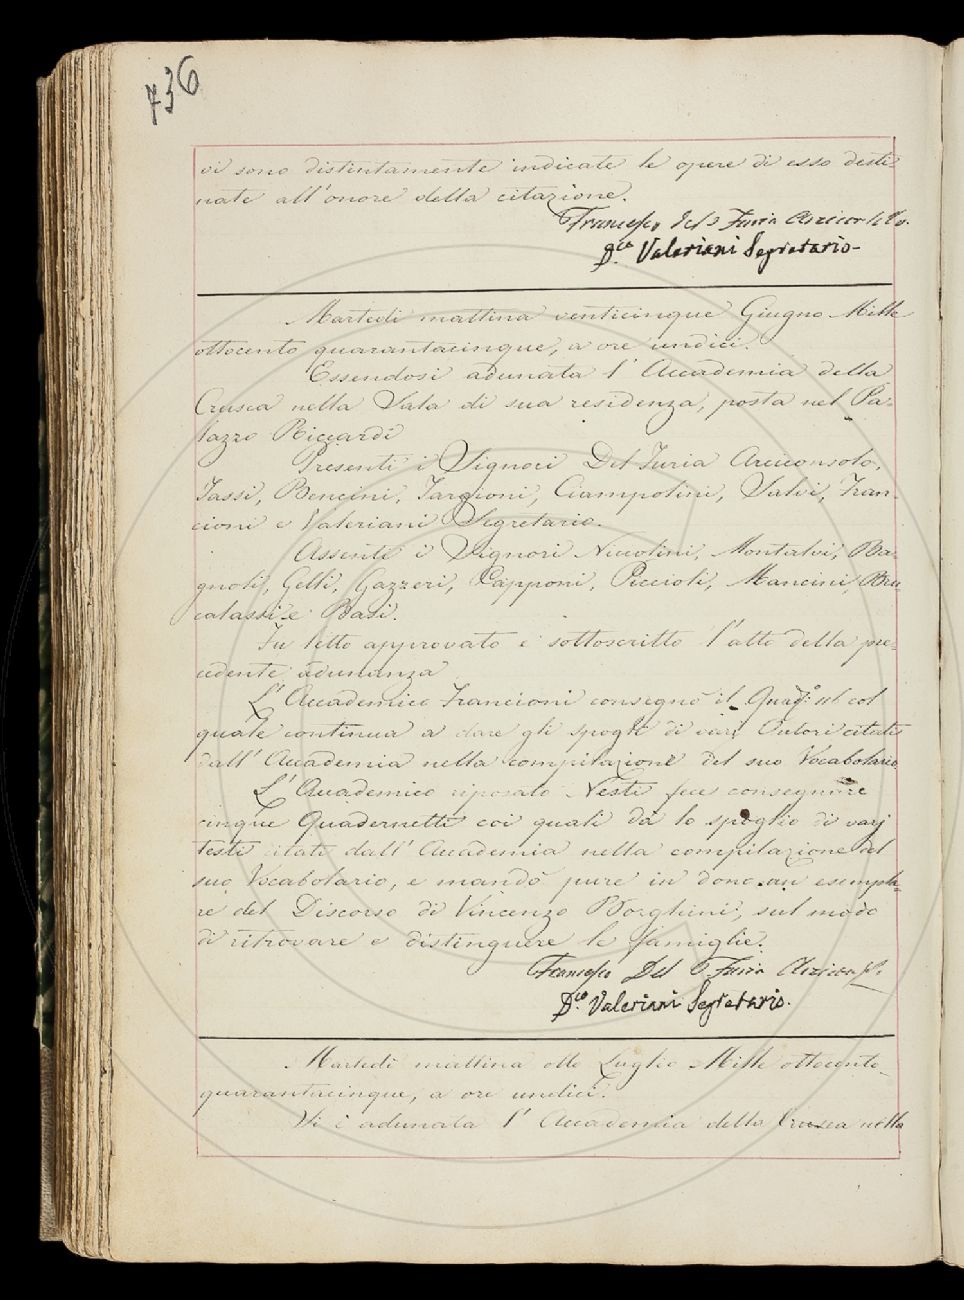 736
vi sono distintamente indicate le opere di esso desti-
nate all'onore della citazione.
Francesco Del Furia Arciconsolo.
D.co Valeriani Segretario.
Martedì mattina venticinque Giugno Mille
ottocento quarantacinque, a ore undici.
Essendosi adunata l'Accademia della
Crusca nella Sala di sua residenza, posta nel Pa-
lazzo Riccardi
Presenti i Signori Del Furia Arciconsolo,
Tassi, Bencini, Targioni, Ciampolini, Salvi, Fran-
cioni e Valeriani Segretario.
Assenti i Signori Niccolini, Montalvi, Ba-
gnoli, Gelli, Gazzeri, Capponi, Puccioli, Mancini, Bru-
calassi e Basi.
Fu letto approvato e sottoscritto l'atto della pre-
cedente adunanza
L'Accademico Francioni consegnò il Quad.o 11 col
quale continua a dare gli spogli di varj Autori citati
dall'Accademia nella compilazione del suo Vocabolario.
L'Accademico riposato Nesti fece consegnare
cinque Quadernetti coi quali dà lo spoglio di varj
testi citati dall'Accademia nella compilazione del
suo Vocabolario, e mandò pure in dono un esempla-
re del Discorso di Vincenzo Borghini, sul modo
di ritrovare e distinguere le famiglie.
Francesco Del Furia Arciconso.
D.co Valeriani Segretario.
Martedì mattina otto Luglio Mille ottocento-
quarantacinque, a ore undici.
Si è adunata l'Accademia della Crusca nella